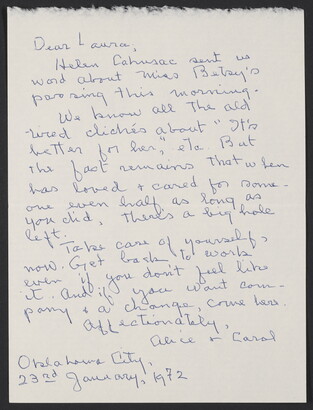 Dear Laura,
Helen Cahusac sent us
word about Miss Betsy's
passing this morning.
We know all the old
tired clichés about "It's
better for her," etc. But
the fact remains that when
has loved & cared for some-
one even half as long as
you did, there's a big hole
left.
Take care of yourself,
now. Get back to work
even if you don't feel like
it. And if you want com-
pany & a change, come here.
Affectionately,
Alice & Carol
Oklahoma City,
23rd January, 1972